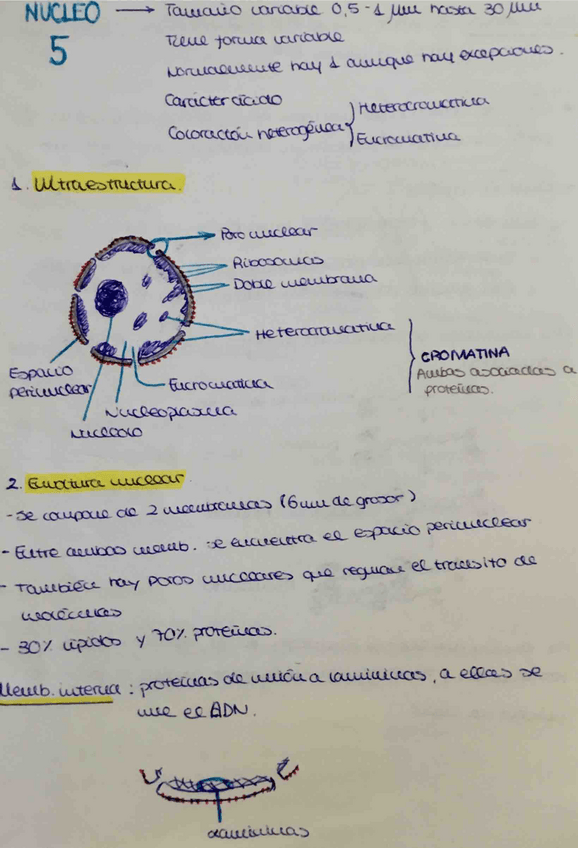 NÚCLEO → Tamaño variable 0,5-1 µm hasta 30 µm
5
Tiene forma variable
Normalmente hay 1 aunque hay excepciones.
Carácter ácido
Coloración heterogénea
Heterocromatina
Eucromatina
1. Ultraestructura.
Poro nuclear
Ribosomas
Doble membrana
Heterocromatina
CROMATINA
Ambas asociadas a
proteínas.
Espacio
perinuclear
Eucromatina
Nucleoplasma
Nucleolo
2. Envoltura nuclear
- Se compone de 2 membranas (6nm de grosor)
- Entre ambas memb. se encuentra el espacio perinuclear
- También hay poros nucleares que regulan el tránsito de
moléculas
- 30% lípidos y 70% proteínas.
Memb. interna : proteínas de unión a lamininas, a ellas se
une el ADN.
Lamininas